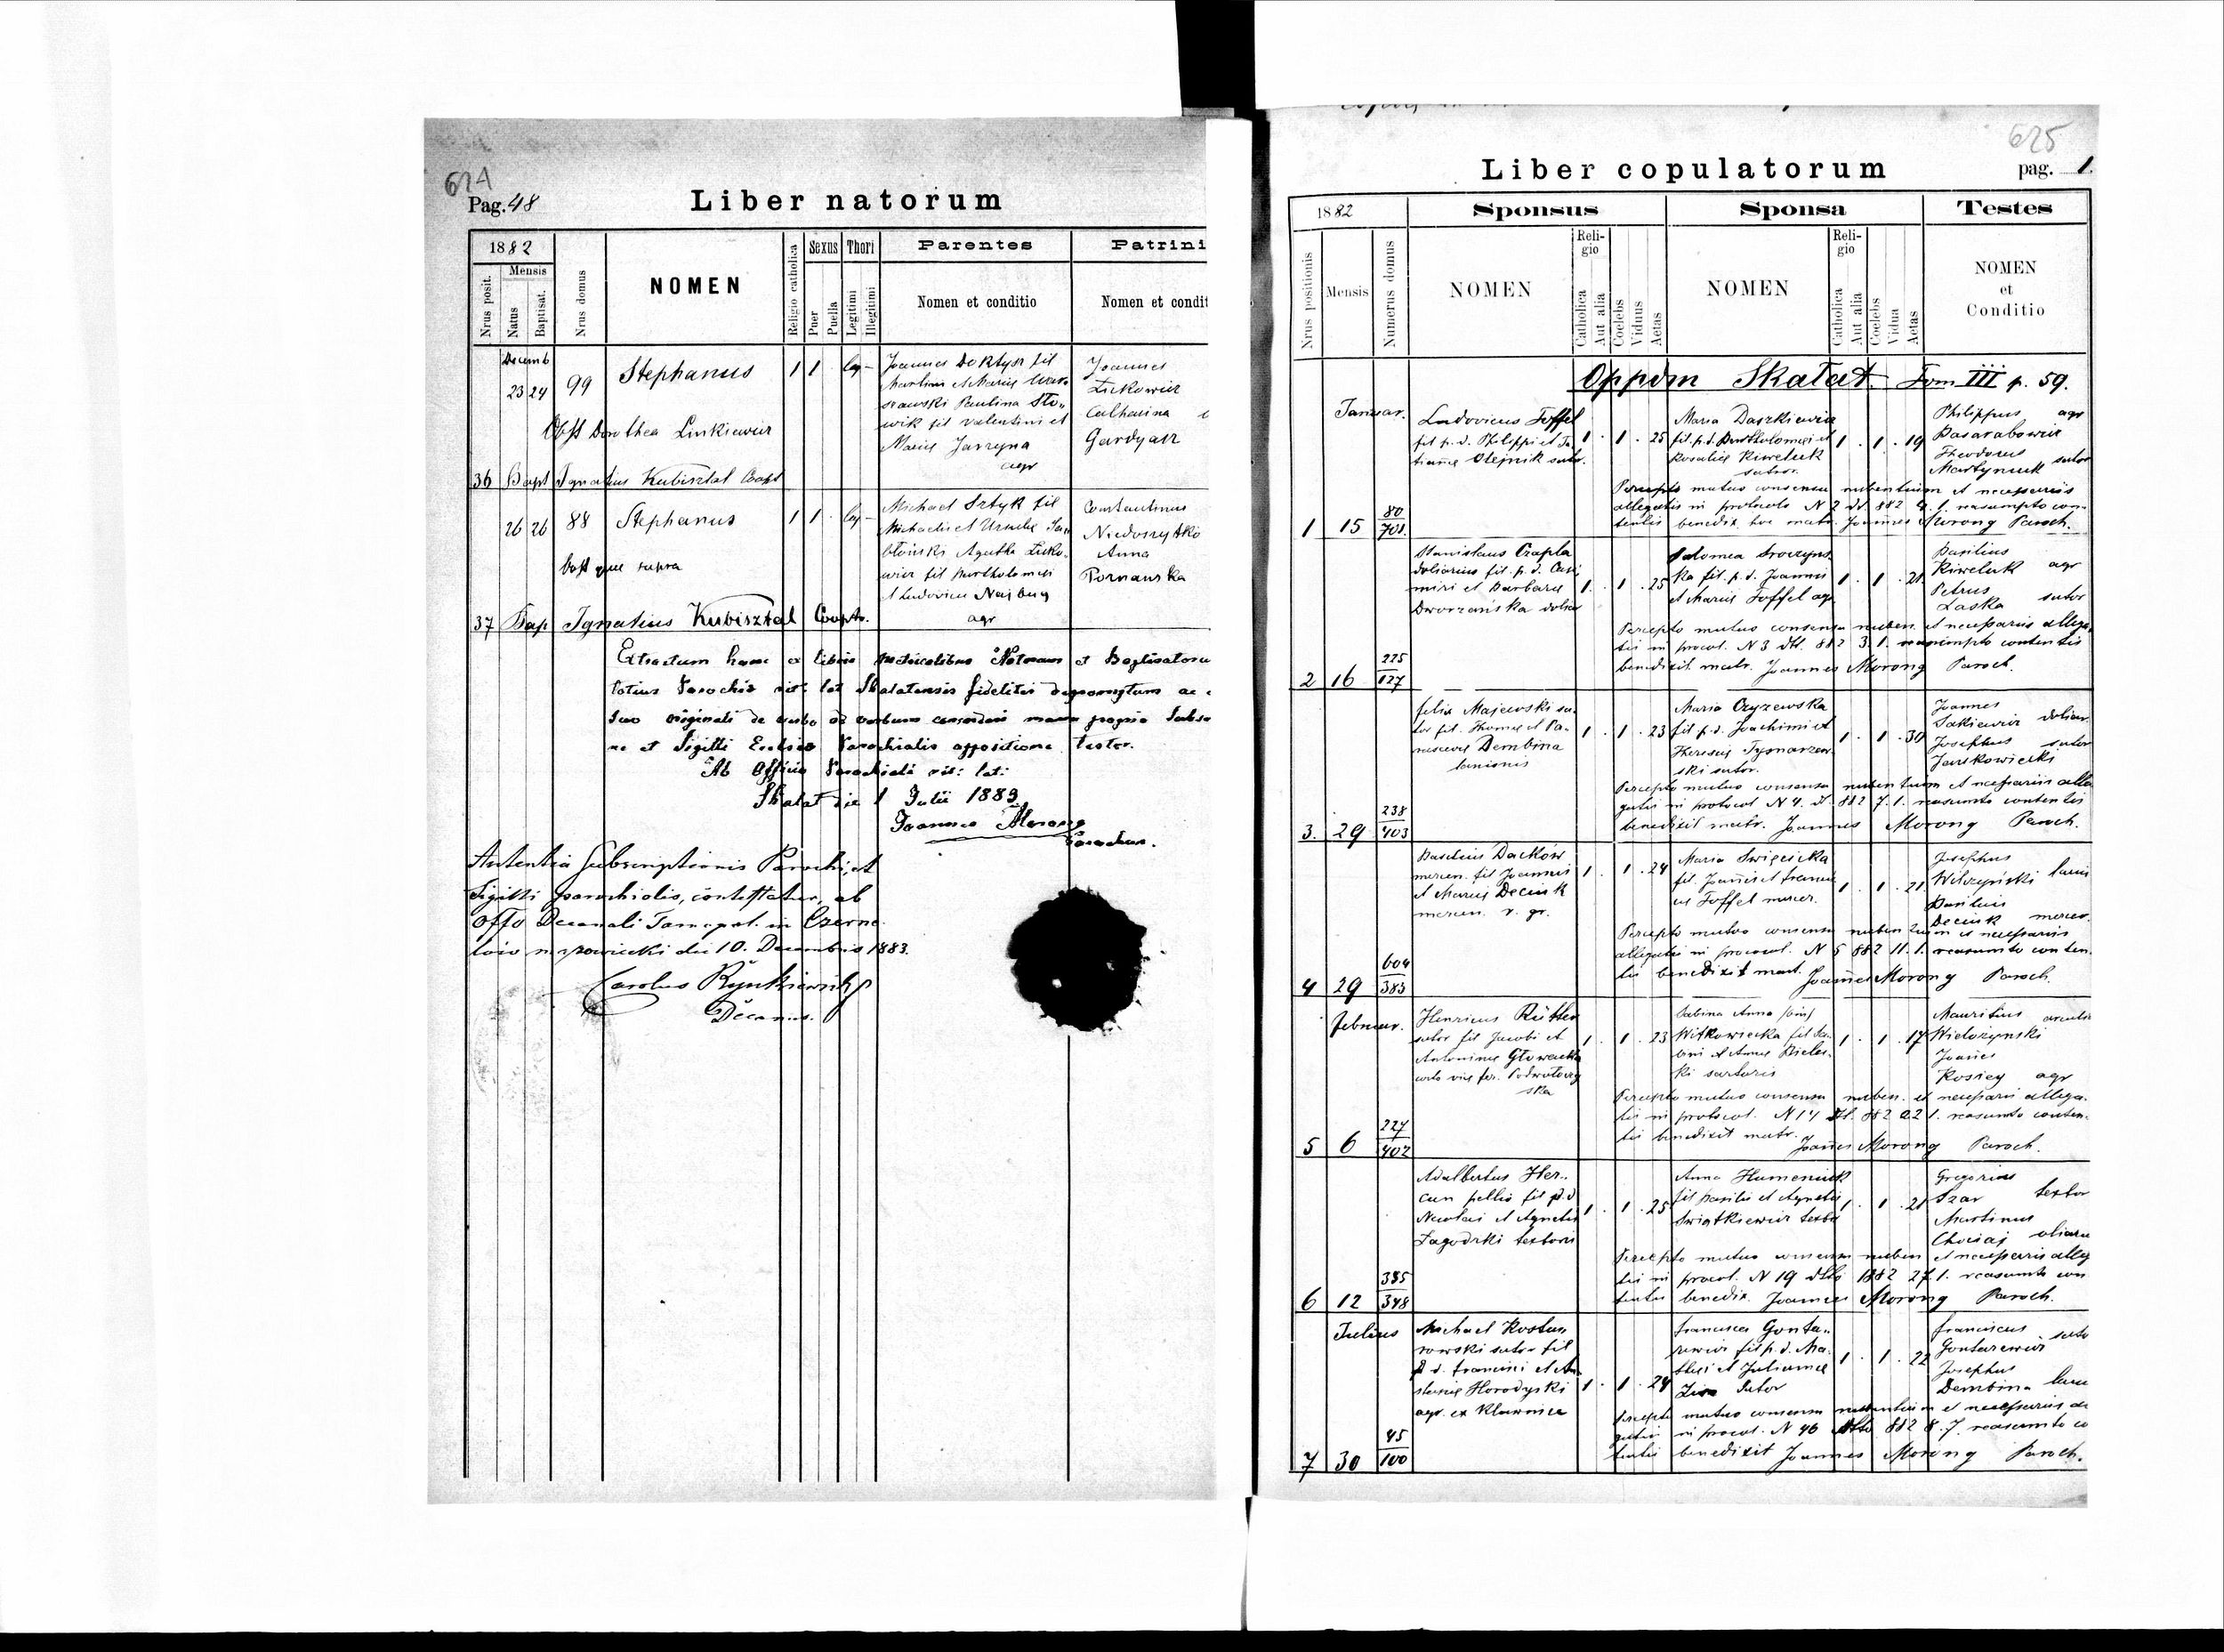 624
Pag. 48
Liber natorum
1882
Nrus posit.
Mensis
Natus
Baptisat.
Nrus domus
NOMEN
Religio catholica
Sexus
Puer
Puella
Thori
Legitimi
Illegitimi
Parentes
Nomen et conditio
Patrini
Nomen et condit
Decemb
23 24 99 Stephanus 1 1 Leg
Joannes Doktyr fil
Martini et Mariae
Paulina Sło„
wik fil Valentini et
Mariae Jarzyna
agr
Joannes
Lickowicz
Catharina
Gardyasz
Obst Dorothea Linkiewicz
36 Bapt Ignatius Kubisztal Coop
26 26 88 Stephanus 1 1 Leg
Michael Sztyk fil
Michaelis et Ursulae Ja„
błoński Agatha Licko„
wicz fil Bartholomei
et Ludovicae Najbug
agr
Constantinus
Niedoszytko
Anna
Poznanska
Obst quae supra
37 Bap Ignatius Kubisztal Coopr.
Extractum hunc ex libris metricalibus Natorum et Baptisatoru
totius Parochiae rit: lat Skalatensis fideliter depromptum ac
suo originali de verbo ad verbum concordari manu propria Subsc
ne et Sigilli Ecclesiae Parochialis appositione testor.
Ab Officio Parochiali rit: lat:
Skalat die 1 Julii 1883
Joannes Morong
Parochus.
Autentia Subscriptionis Parochi, et
Sigilli parochialis, contestatur, ab
Offo Decanali Tarnopol. in Czerne
lów mazowiecki die 10. Decembris 1883.
Carolus Rynkiewicz
Decanus.
625
Liber copulatorum
pag. 1.
1882
Nrus positionis
Mensis
Numerus domus
Sponsus
NOMEN
Religio
Catholica
Aut alia
Coelebs
Viduus
Aetas
Sponsa
NOMEN
Religio
Catholica
Aut alia
Coelebs
Vidua
Aetas
Testes
NOMEN
et
Conditio
Oppdm Skałat Tom III p. 59.
Januar.
Ludovicus Toffel
fil p. d. Philippi et Ta„
tiannae Olejnik sutor.
1 . 1 . 25
Maria Daszkiewicz
fil. p. d. Bartholomaei et
Rosaliae Kiweluk
sutor.
1 . 1 . 19
Philippus agr
Basarabowicz
Theodorus
Martyniuk sutor
Percepto mutuo consensu nubentium et necessariis
allegatis in protocolo N 2 dd. 882 2. 1. reasumpto con„
tentis benedix. hoc matr. Joannes Morong Paroch.
1 15 80/701
Stanislaus Czapla
doliarius fil. p. d. Casi
miri et Barbarae
Dworzanska doliar
1 . 1 . 25
Salomea Sroczyns
ka fil. p. d. Joannis
et Mariae Toffel agr
1 . 1 . 21
Basilius
Kiweluk agr
Petrus
Laska sutor
Percepto mutuo consensu nuben. et necessariis allega
tis in protocol. N 3 dd. 882 3. 1. reasumpto contentis
benedixit matr. Joannes Morong Paroch.
2 16 225/127
Felix Majewski su„
tor fil. Thomae et Pa„
rasceviae Dembina
lanionis
1 . 1 . 23
Maria Czyzewska
fil p. d. Joachimi et
Theresiae Tysnarzew
ski sutor.
1 . 1 . 30
Joannes
Sakiewicz doliar.
Josephus sutor
Jarskowiecki
Percepto mutuo consensu nubentium et necessariis alle
gatis in protocol N 4. d. 882 7. 1. reasumto contentis
benedixit matr. Joannes Morong Paroch.
3. 29 238/403
Basilius Dacków
mercen. fil Joannis
et Mariae Deciuk
mercen. r. gr.
1 . 1 . 24
Maria Swięcicka
fil. Joannis et Francis
cae Toffel mercer.
1 . 1 . 21
Josephus
Wilczyński lanio
Basilius
Deciuk mercer.
Percepto mutuo consensu nubentium et necessariis
allegatis in protocol. N 5 882 11. 1. reasumto conten„
tis benedixit mart. Joannes Morong Paroch.
4 29 604/383
Februar.
Henricus Rütter
sutor fil Jacobi et
Antoninae Głowacka
Podwołoczy
ska
1 . 1 . 23
Sabina Anna
Witkowiecka fil
et Annae Biels„
ki sartoris
1 . 1 . 17
Mauritius
Wielozynski
Joannes
Kosicy agr
Percepto mutuo consensu nuben. et necessariis allega„
tis in protocol. N 14 dd. 882 22 1. reasumto conten„
tis benedixit matr. Joannes Morong Paroch.
5 6 227/402
Adalbertus Her„
cun pellio fil p. d
Nicolai et Agnetis
Zagodzki textoris
1 . 1 . 25
Anna Humeniuk
fil Basilii et Agnetis
Swiątkiewicz textor
1 . 1 . 21
Gregorius
Szar textor
Martinus
Chociaj
Percepto mutuo consensu nuben et necessariis alleg
tis in protocol. N 19 ddto 1882 27. 1. reasumto con
tentis benedix. Joannes Morong Paroch.
6 12 385/348
Julius
Michael Kostu„
rowski sutor fil
p. d. Francisci et An„
stasiae Horodyski
agr. ex Klawnice
1 . 1 . 24
Francisca Gonta„
rewicz fil p. d. Ma„
thei et Julianae
Sutor
1 . 1 . 22
Franciscus suto
Gontarewicz
Josephus
Dembina lani
Percepto mutuo consensu nubentium et necessariis alle
gatis in protocol. N 46 ddto 882 8. 7. reasumto co
tentis benedixit Joannes Morong Paroch.
7 30 45/100